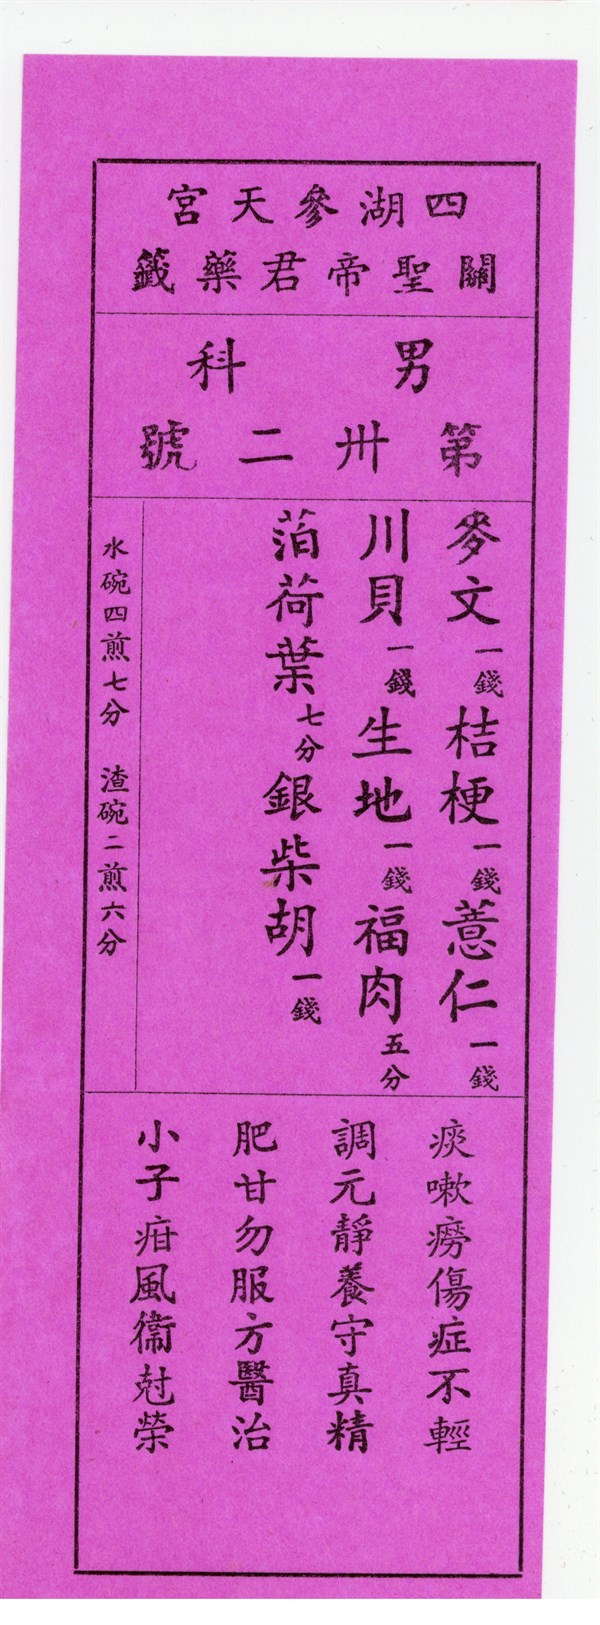 四湖參天宮
關聖帝君藥籤
男科
第卅二號
麥文一錢桔梗一錢薏仁一錢
川貝一錢生地一錢福肉五分
萡荷葉七分銀柴胡一錢
水碗四煎七分 渣碗二煎六分
痰嗽癆傷症不輕
調元靜養守真精
肥甘勿服方醫治
小子疳風衛尅榮